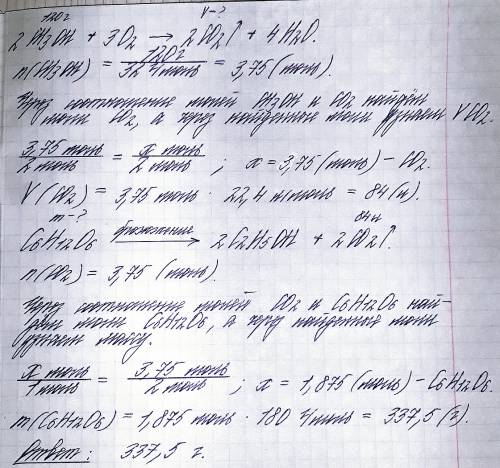 120г V-?
2CH3OH + 3O2 → 2CO2↑ + 4H2O.
n(CH3OH) = 120г / 32 г/моль = 3,75 (моль).
Через соотношение молей CH3OH и CO2 найдём
моли CO2, а через найденные моли узнаем V CO2.
3,75 моль / 2 моль = x моль / 2 моль ; x = 3,75 (моль) - CO2.
V(CO2) = 3,75 моль · 22,4 л/моль = 84 (л).
m-? 84л
C6H12O6 брожение → 2C2H5OH + 2CO2↑.
n(CO2) = 3,75 (моль).
Через соотношение молей CO2 и C6H12O6 най-
дём моли C6H12O6, а через найденные моли
узнаем массу.
x моль / 1 моль = 3,75 моль / 2 моль ; x = 1,875 (моль) - C6H12O6.
m(C6H12O6) = 1,875 моль · 180 г/моль = 337,5 (г).
Ответ: 337,5 г.